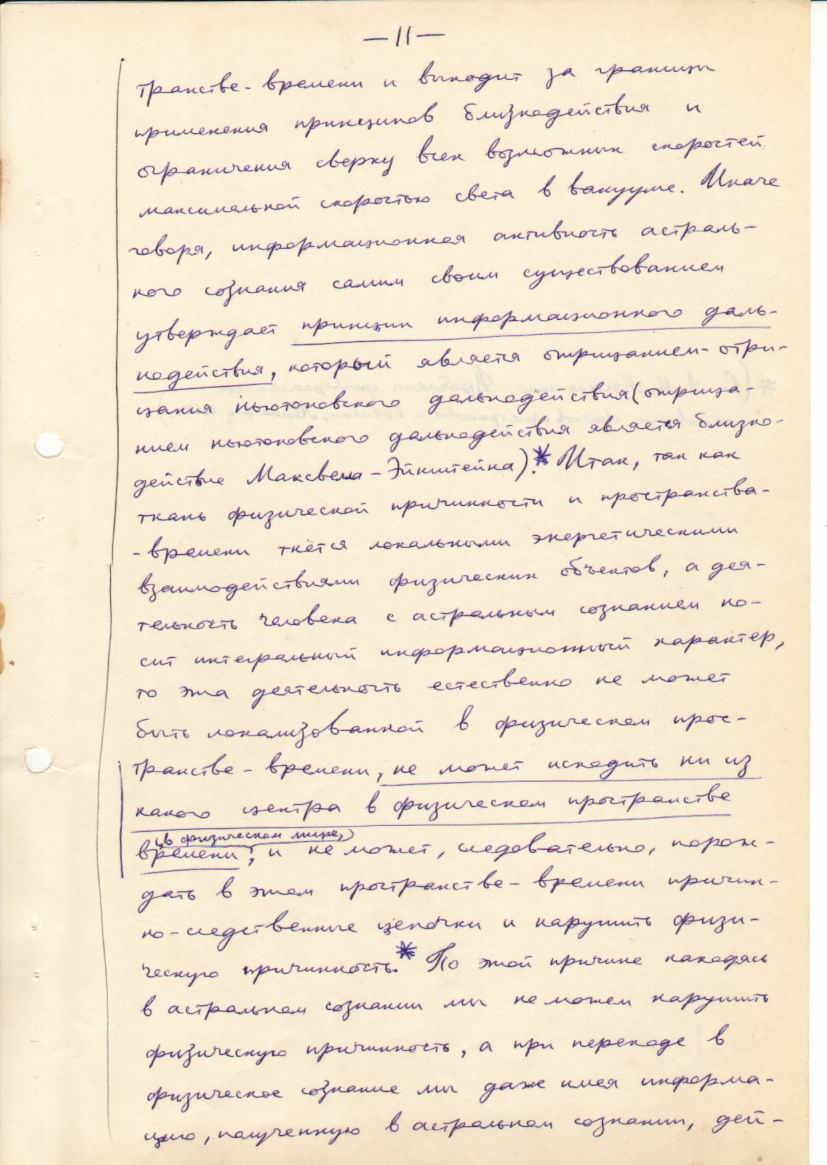 — 11 —
транстве-времени и выходит за границы
применения принципов близкодействия и
ограничения сверху всех возможных скоростей
максимальной скоростью света в вакууме. Иначе
говоря, информационная активность астраль-
ного сознания самим своим существованием
утверждает принцип информационного даль-
нодействия, который является отрицанием-отри-
цания ньютоновского дальнодействия (отрица-
нием ньютоновского дальнодействия является близко-
действие Максвела-Эйнштейна).* Итак, так как
ткань физической причинности и пространства-
-времени ткётся локальными энергетическими
взаимодействиями физических объектов, а дея-
тельность человека с астральным сознанием но-
сит интегральный информационный характер,
то эта деятельность естественно не может
быть локализованной в физическом прос-
транстве-времени, не может исходить ни из
какого центра в физическом пространстве
(в физическом мире,)
времени, и не может, следовательно, порож-
дать в этом пространстве-времени причин-
но-следственные цепочки и нарушить физи-
ческую причинность.* По этой причине находясь
в астральном сознании мы не можем нарушить
физическую причинность, а при переходе в
физическое сознание мы даже имея информа-
цию, полученную в астральном сознании, дей-